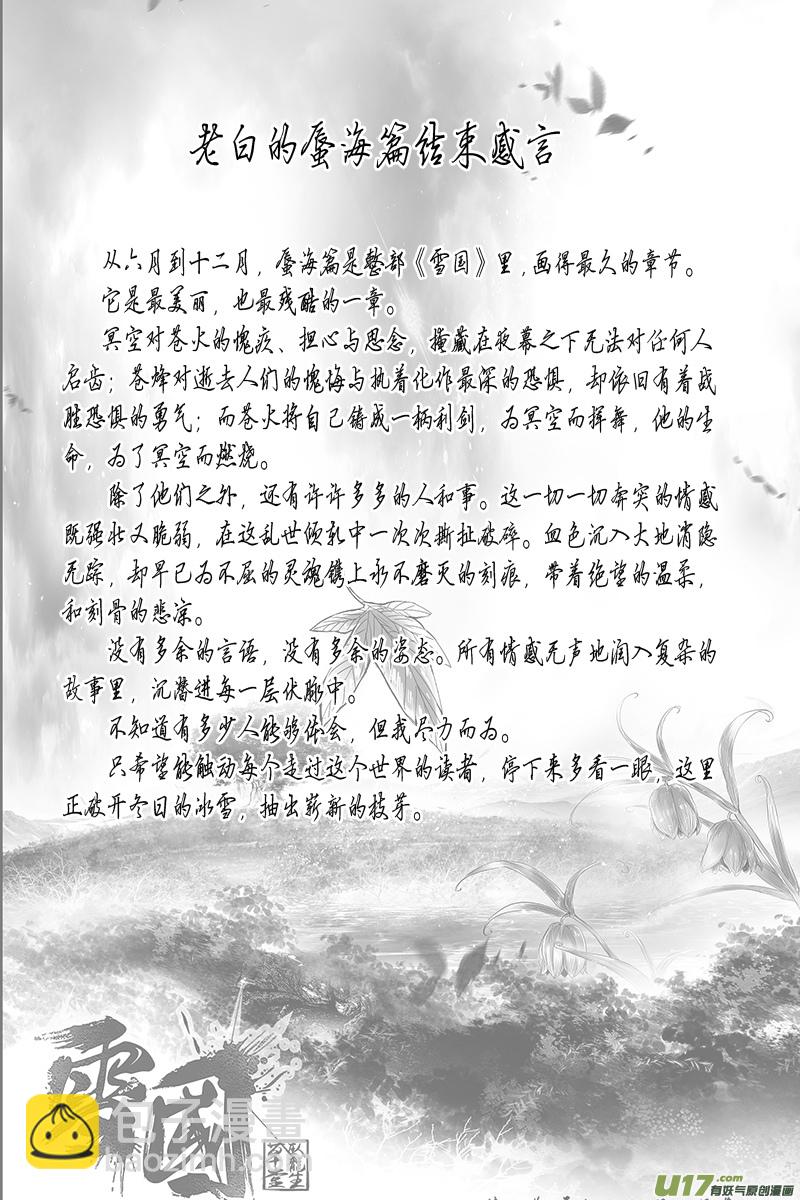 U17.com
有妖气原创漫画
老白的蜃海篇结束感言
从六月到十二月，蜃海篇是整部《雪国》里，画得最久的章节。
它是最美丽，也最残酷的一章。
冥空对苍火的愧疚、担心与思念，掩藏在夜幕之下无法对任何人
启齿；苍烽对逝去人们的愧悔与执着化作最深的恐惧，却依旧有着战
胜恐惧的勇气；而苍火将自己铸成一柄利剑，为冥空而挥舞，他的生
命，为了冥空而燃烧。
除了他们之外，还有许许多多的人和事。这一切一切奔突的情感
既强壮又脆弱，在这乱世倾轧中一次次撕扯破碎。血色沉入大地消隐
无踪，却早已为不屈的灵魂镌上永不磨灭的刻痕，带着绝望的温柔，
和刻骨的悲凉。
没有多余的言语，没有多余的姿态。所有情感无声地润入复杂的
故事里，沉潜进每一层伏脉中。
不知道有多少人能够体会，但我尽力而为。
只希望能触动每个走过这个世界的读者，停下来多看一眼，这里
正破开冬日的冰雪，抽出崭新的枝芽。
雪國
包子漫畫
baozimh.com
U17.com
有妖气原创漫画